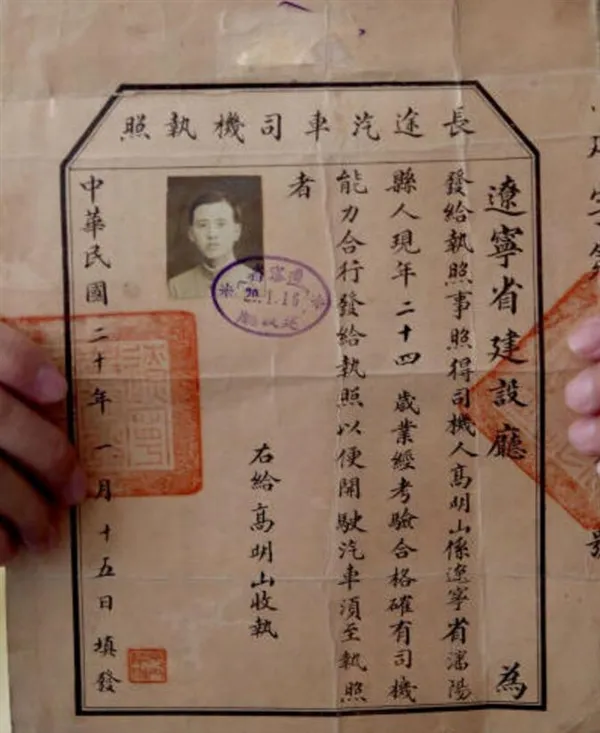 長途汽車司機執照
遼寧省建設廳為
發給執照事照得司機人高明山係遼寧省瀋陽
縣人現年二十四歲業經考驗合格確有司機
能力合行發給執照以便開駛汽車須至執照
者
右給高明山收執
中華民國二十年一月十五日填發
遼寧省
20.1.16
建設廳